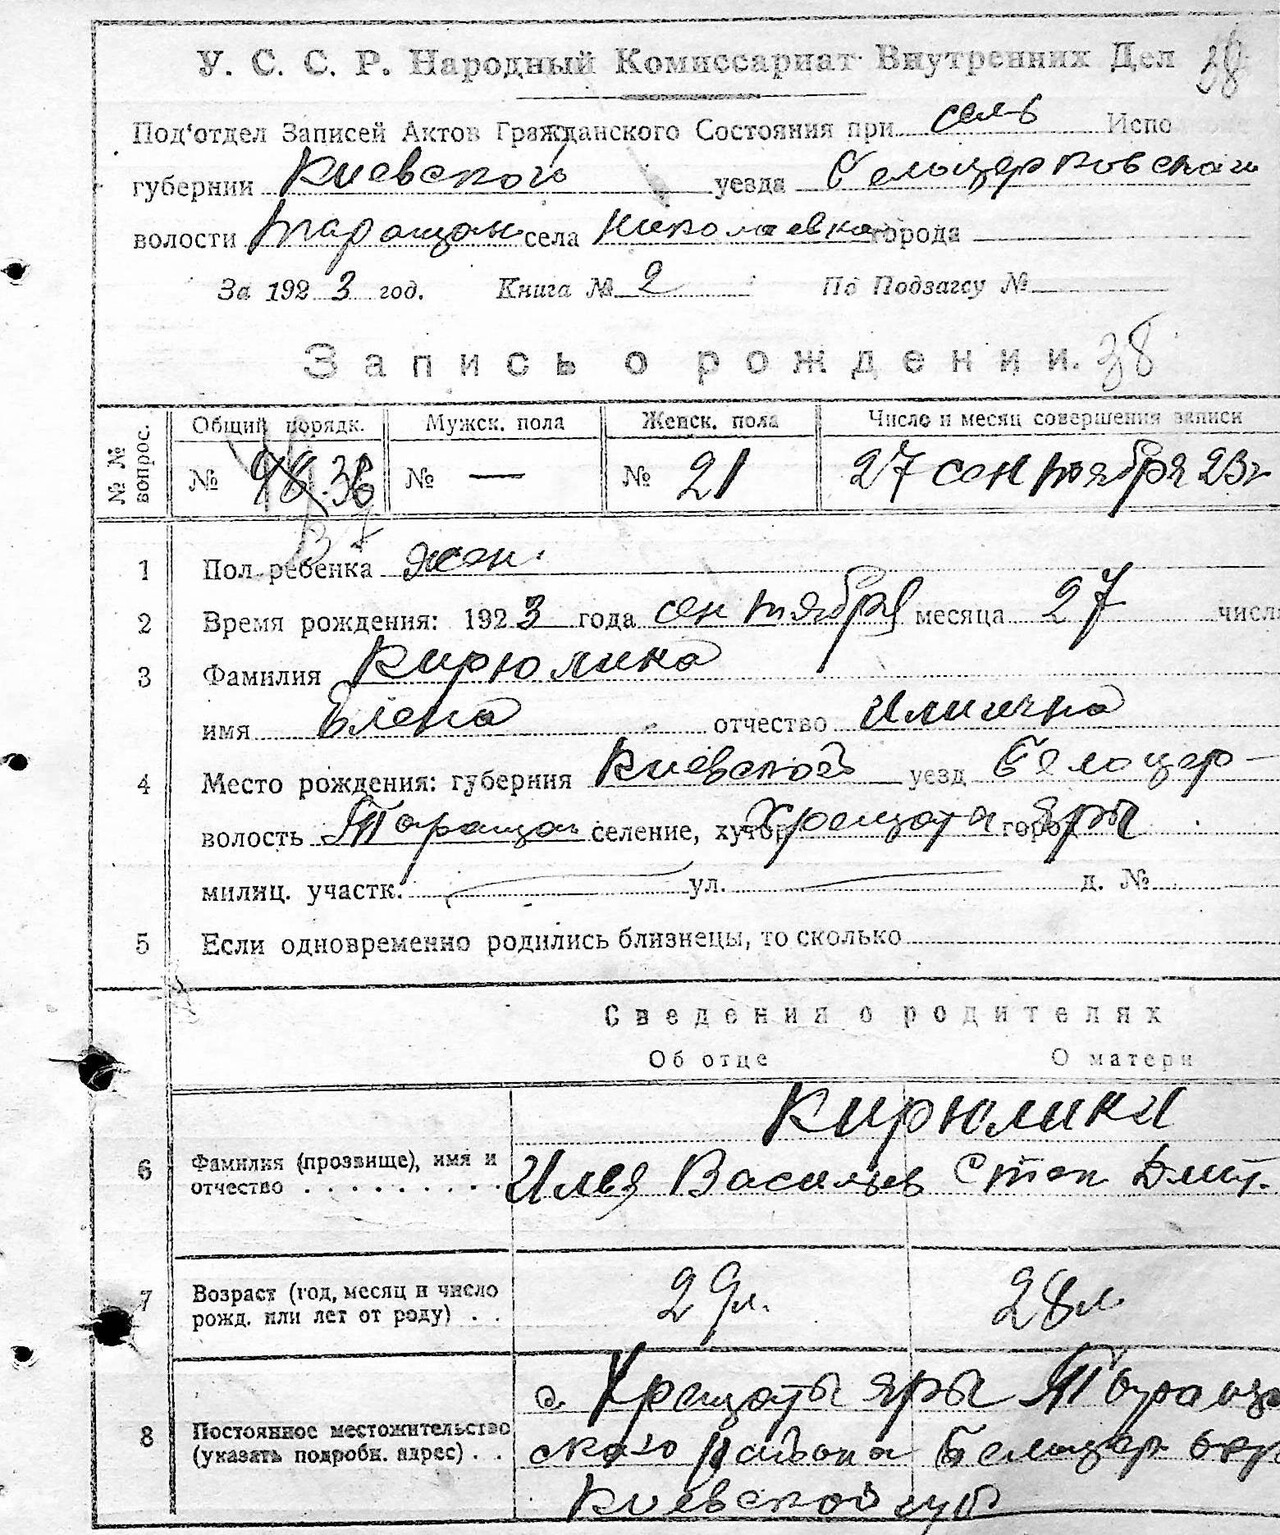 У. С. С. Р. Народный Комиссариат Внутренних Дел 38
Под'отдел Записей Актов Гражданского Состояния при сель Испо
губернии Киевской уезда Белоцерковского
волости Таращан села Николаевка города
За 1923 год. Книга № 2 По Подзагсу №
Запись о рождении. 38
№ № вопрос. Общий порядк. Мужск. пола Женск. пола Число и месяц совершения записи
№ 38 № — № 21 27 сентября 23 г
1 Пол ребенка жен.
2 Время рождения: 1923 года сентября месяца 27 числ
3 Фамилия Кирюлина
имя Елена отчество Илична
4 Место рождения: губерния Киевской уезд Белоцер-
волость Таращан селение, хутор Хрещати город Яры
милиц. участк. ул. д. №
5 Если одновременно родились близнецы, то сколько
Сведения о родителях
Об отце О матери
Кирюлини
6 Фамилия (прозвище), имя и
отчество . . . . . . . . . Илья Васильев Степ Дмит.
7 Возраст (год, месяц и число
рожд. или лет от роду) . . 29 л. 28 л
с. Хрещаты Яры Таращ
8 Постоянное местожительство
(указать подробн. адрес) . . ского района Белоцер. окр
Киевской губ